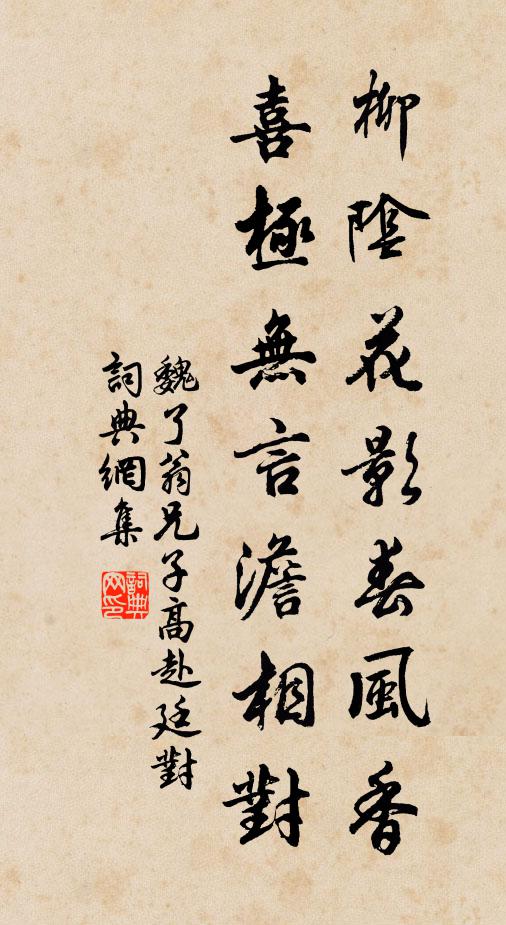 柳陰花影春風香
喜極無言澹相對
魏了翁兄子高赴廷對
詞典網集
詞典
网印